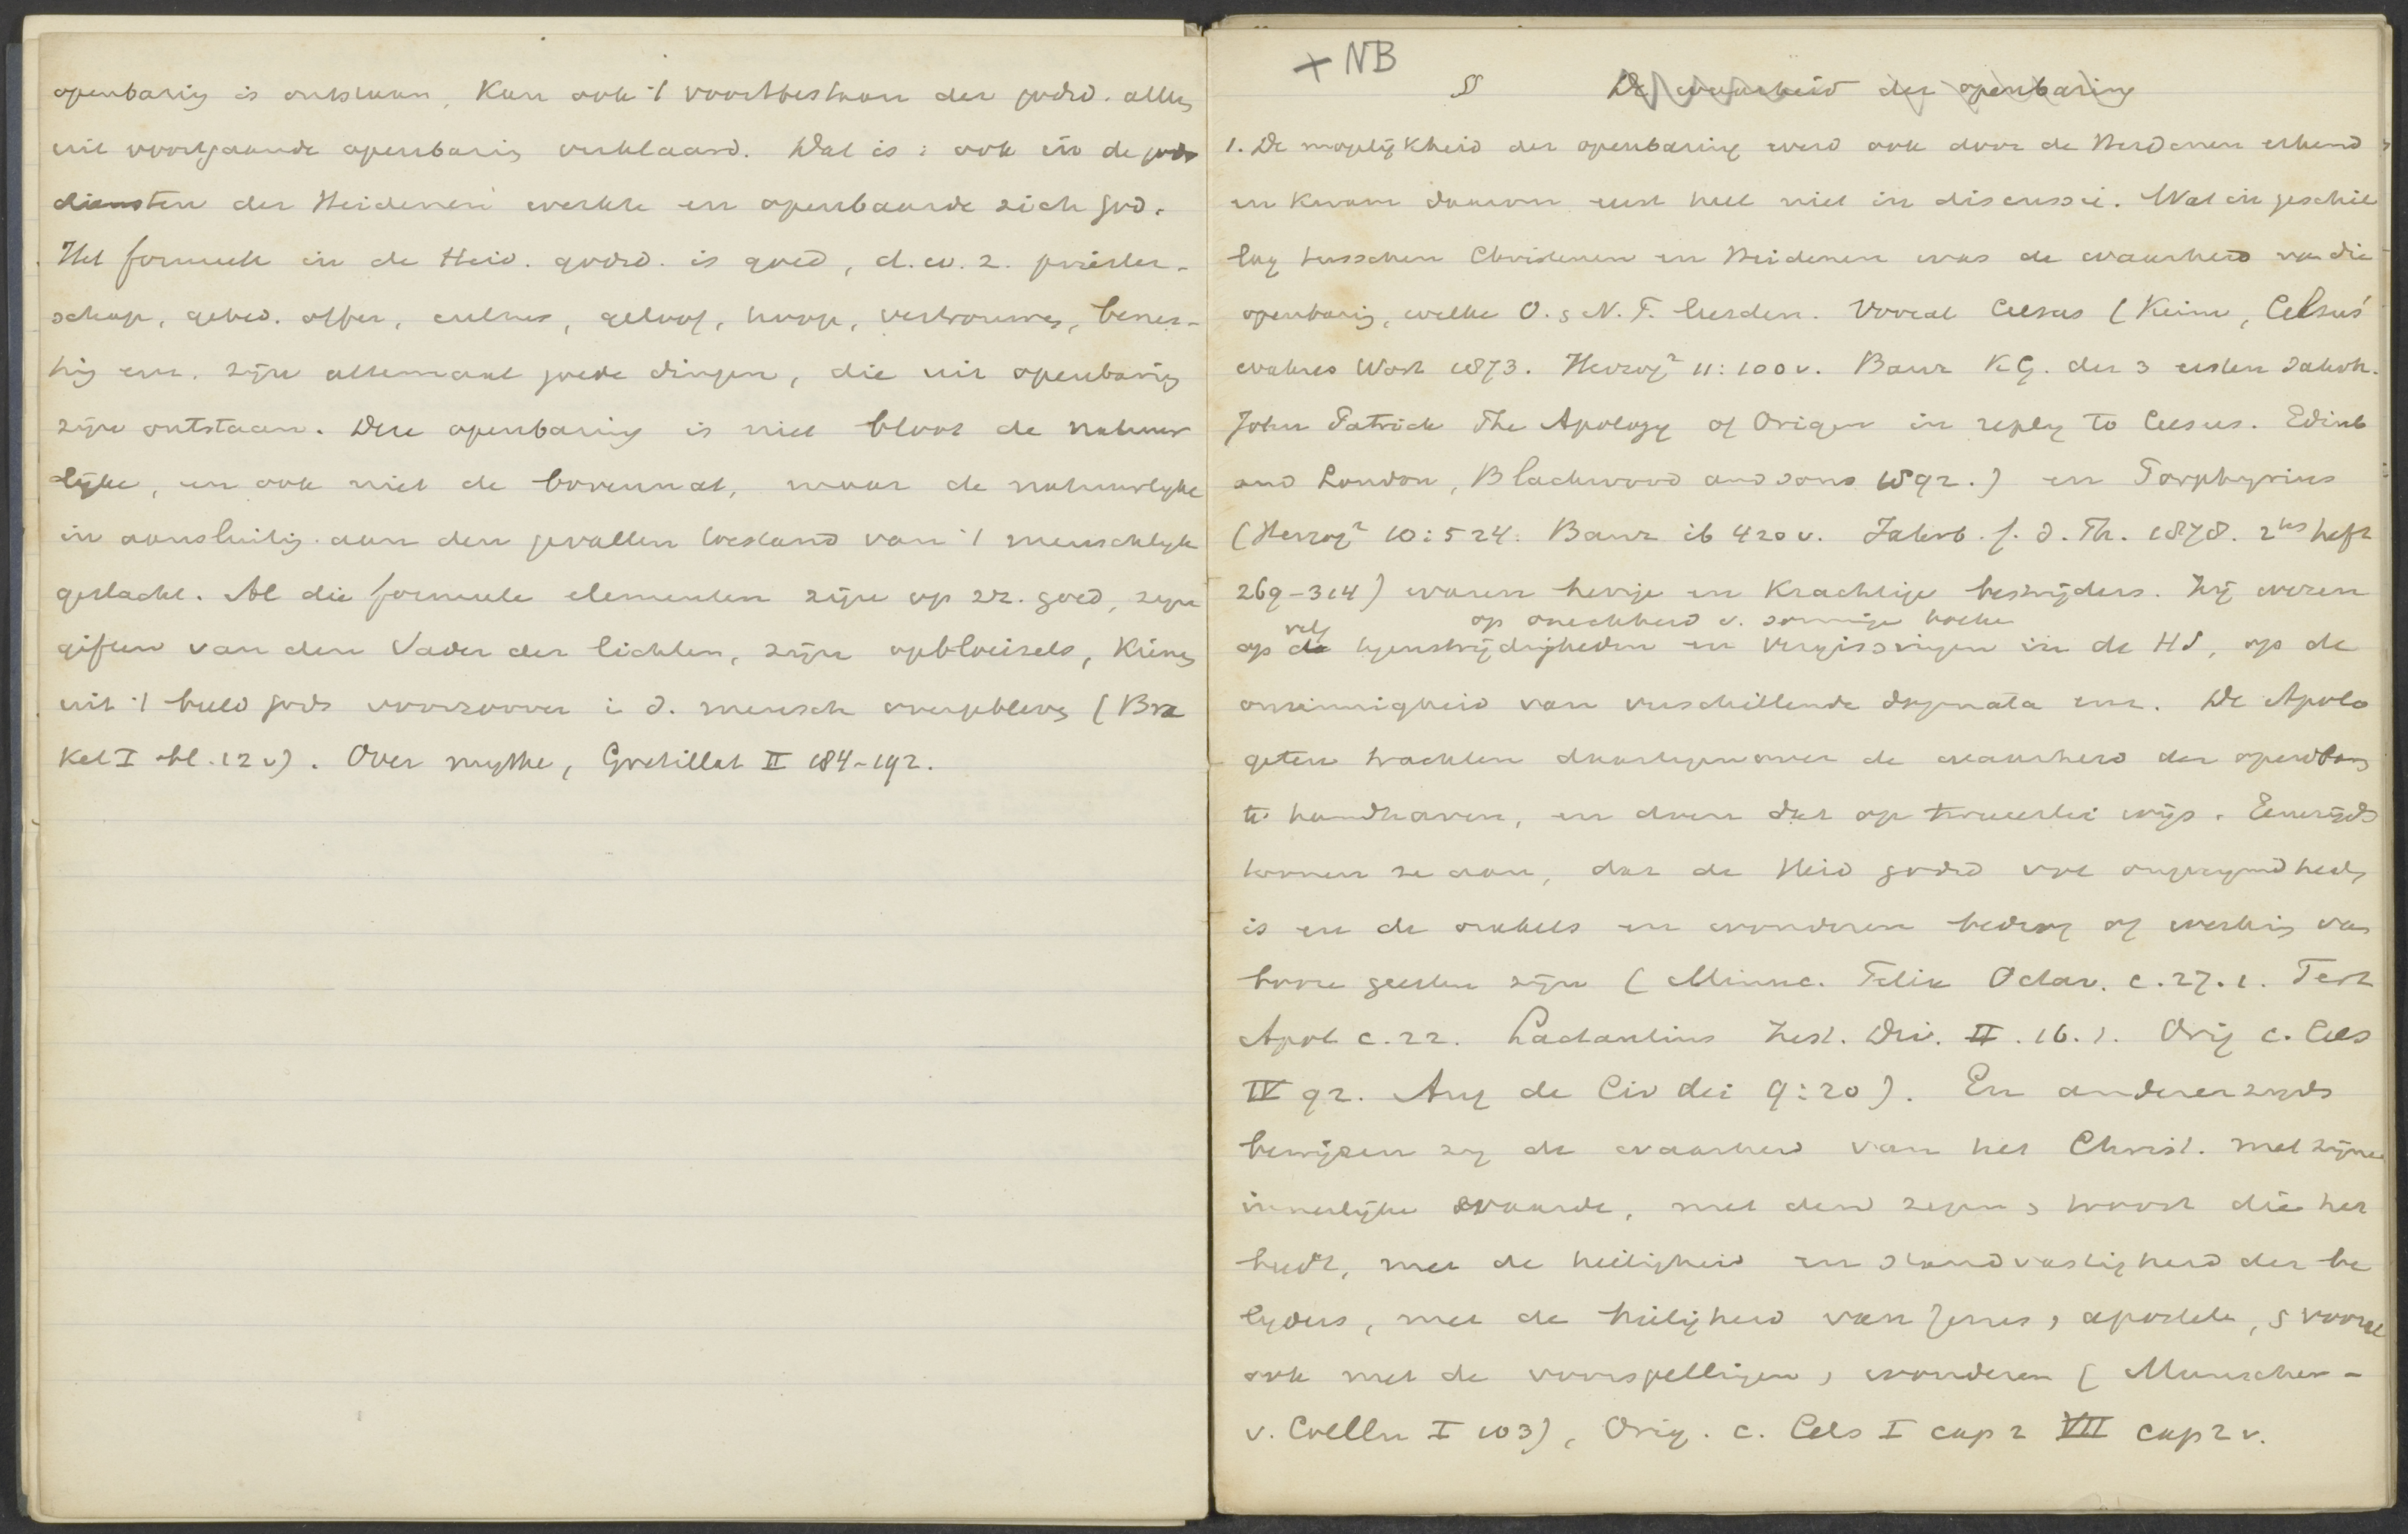 openbaring is ontstaan, kan ook 't voortbestaan der godsd. alleen
uit voortgaande openbaring verklaard. Dat is: ook in de gods
diensten der Heidenen werkte en openbaarde zich God.
Het formeele in de Heid. godsd. is goed, d.w.z. priester-
schap, gebed. offer, cultus, geloof, hoop, vertrouwen,
enz. zijn allemaal goede dingen, die uit openbaring
zijn ontstaan. Deze openbaring is niet bloot de natuur
lijke, en ook niet de bovennat, maar de natuurlijke
in aansluiting aan den gevallen toestand van 't menschelijk
geslacht. Al die formeele elementen zijn op zz. goed, zijn
giften van den Vader der lichten, zijn opbloeisels, kiemen
uit 't beeld Gods voorzoover i d. mensch overgebleven (Bra
kel I bl. 12 v). Over mythe, Gretillat II 184-192.
+ NB
§ De waarheid der openbaring
1. De mogelijkheid der openbaring werd ook door de Heidenen erkend
en kwam daarom eerst heel niet in discussie. Wat in geschil
lag tusschen Christenen en Heidenen was de waarheid van die
openbaring, welke O. & N. T. leerden. Vooral Celsus (Keim, Celsus'
wahres Wort 1873. Herzog² 11:100 v. Baur K G. der 3 ersten Jahrh.
John Patrick The Apology of Origen in reply to Celsus. Edinb
and London, Blackwood and sons 1892.) en Porphyrius
(Herzog² 10:524. Baur ib 420 v. Jahrb. f. d. Th. 1878. 2tes heft
269-314) waren hevige en krachtige bestrijders. Zij wezen
op onechtheid v. sommige boeken
op de vele tegenstrijdigheden en vergissingen in de HS, op de
onzinnigheid van verschillende dogmata enz. De Apolo
geten trachten daartegenover de waarheid der openbaring
te handhaven, en doen dat op tweeerlei wijs. Eenerzijds
toonen ze aan, dat de Heid godsd vol ongerijmdheden
is en de orakels en wonderen bedrog of werking van
booze geesten zijn (Minuc. Felix Octav. c. 27. 1. Tert
Apol c. 22. Lactantius Inst. Div. II. 16. 1. Orig c. Cels
IV 92. Aug de Civ dei 9:20). En andererzijds
bewijzen zij de waarheid van het Christ. met zijne
innerlijke waarde, met den zegen & troost die het
biedt, met de heiligheid en standvastigheid der be
lijders, met de heiligheid van Jezus & apostelen, & vooral
ook met de voorspellingen & wonderen (Munscher-
v. Coelln I 103), Orig. c. Cels I cap 2 VII cap 2 v.